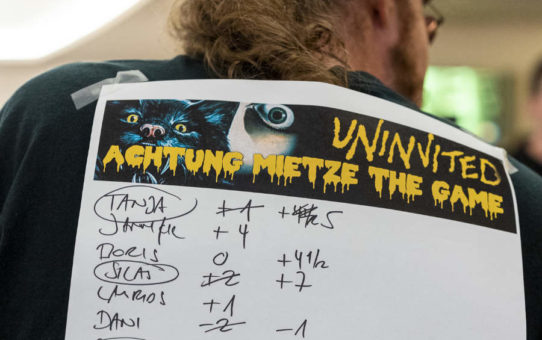 UNINVITED
ACHTUNG MIETZE THE GAME
TANJA +1
+4
DORIS 0 +4 1/2
SILAS +2 +7
+1
DANI -2 -1